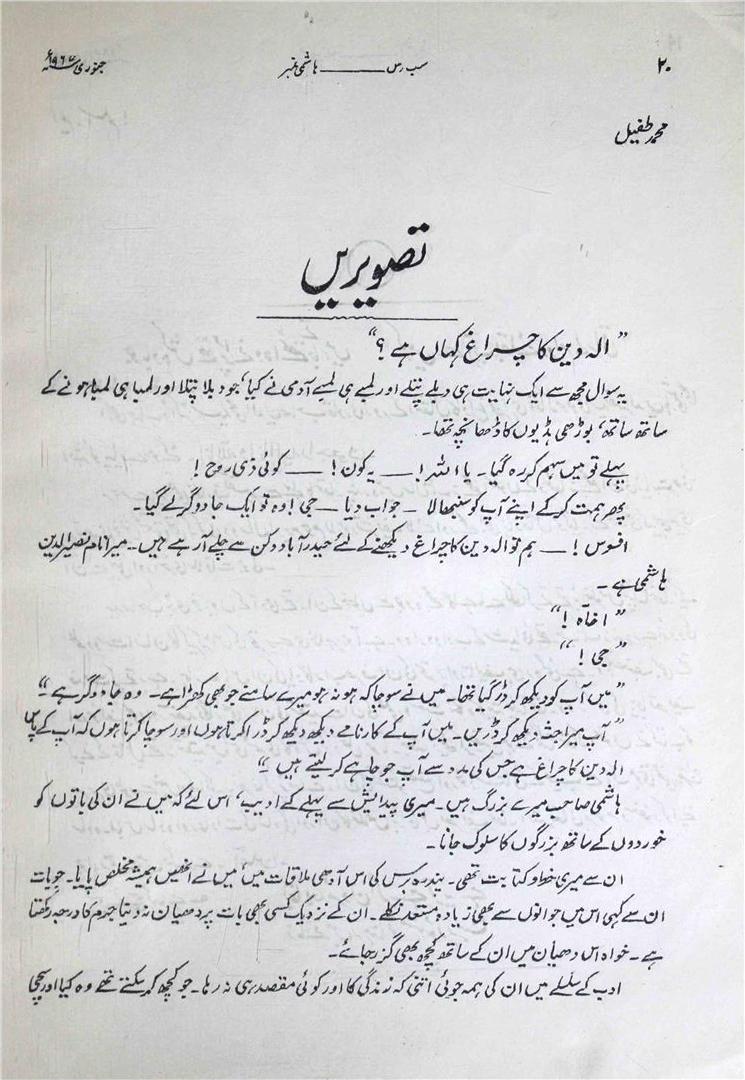 ۲۰ سب رس ــــــ ہاشمی نمبر جنوری ۱۹۶۷ء
محمد طفیل
تصویریں
"الہ دین کا چراغ کہاں ہے؟"
یہ سوال مجھ سے ایک نہایت ہی دبلے پتلے اور لمبے ہی لمبے آدمی نے کیا، جو دبلا پتلا اور لمبا ہی لمبا ہونے کے
ساتھ ساتھ، بوڑھی ہڈیوں کا ڈھانچہ تھا۔
پہلے تو میں سہم کر رہ گیا۔ یا اللہ! — یہ کون! — کوئی ذی روح!
پھر ہمت کر کے اپنے آپ کو سنبھالا — جواب دیا — جی! وہ تو ایک جادوگر لے گیا۔
افسوس! — ہم تو الہ دین کا چراغ دیکھنے کے لئے حیدرآباد دکن سے چلے آ رہے ہیں — میرا نام نصیر الدین
ہاشمی ہے۔
"اخّاہ!"
"جی!"
"میں آپ کو دیکھ کر ڈر گیا تھا۔ میں نے سوچا کہ ہو نہ ہو میرے سامنے جو بھی کھڑا ہے۔ وہ جادوگر ہے"
"آپ میرا جثہ دیکھ کر ڈریں۔ میں آپ کے کارنامے دیکھ دیکھ کر ڈرا کرتا ہوں اور سوچا کرتا ہوں کہ آپ کے پاس
الہ دین کا چراغ ہے جس کی مدد سے آپ جو چاہے کر لیتے ہیں"
ہاشمی صاحب میرے بزرگ ہیں۔ میری پیدائش سے پہلے کے ادیب، اس لئے کہ میں نے ان کی باتوں کو
خوردوں کے ساتھ بزرگوں کا سلوک جانا۔
ان سے میری خط و کتابت تھی۔ پندرہ برس کی اس آدھی ملاقات میں، میں نے انھیں ہمیشہ مخلص پایا۔ جو بات
ان سے کہی اس میں جوانوں سے بھی زیادہ مستعد نکلے۔ ان کے نزدیک کسی بھی بات پر دھیان نہ دینا جرم کا درجہ رکھتا
ہے۔ خواہ اس دھیان میں ان کے ساتھ کچھ بھی گزر جائے۔
ادب کے سلسلے میں ان کی ہمہ جوئی اتنی کہ زندگی کا اور کوئی مقصد ہی نہ رہا۔ جو کچھ کر سکتے تھے وہ کیا اور سچی